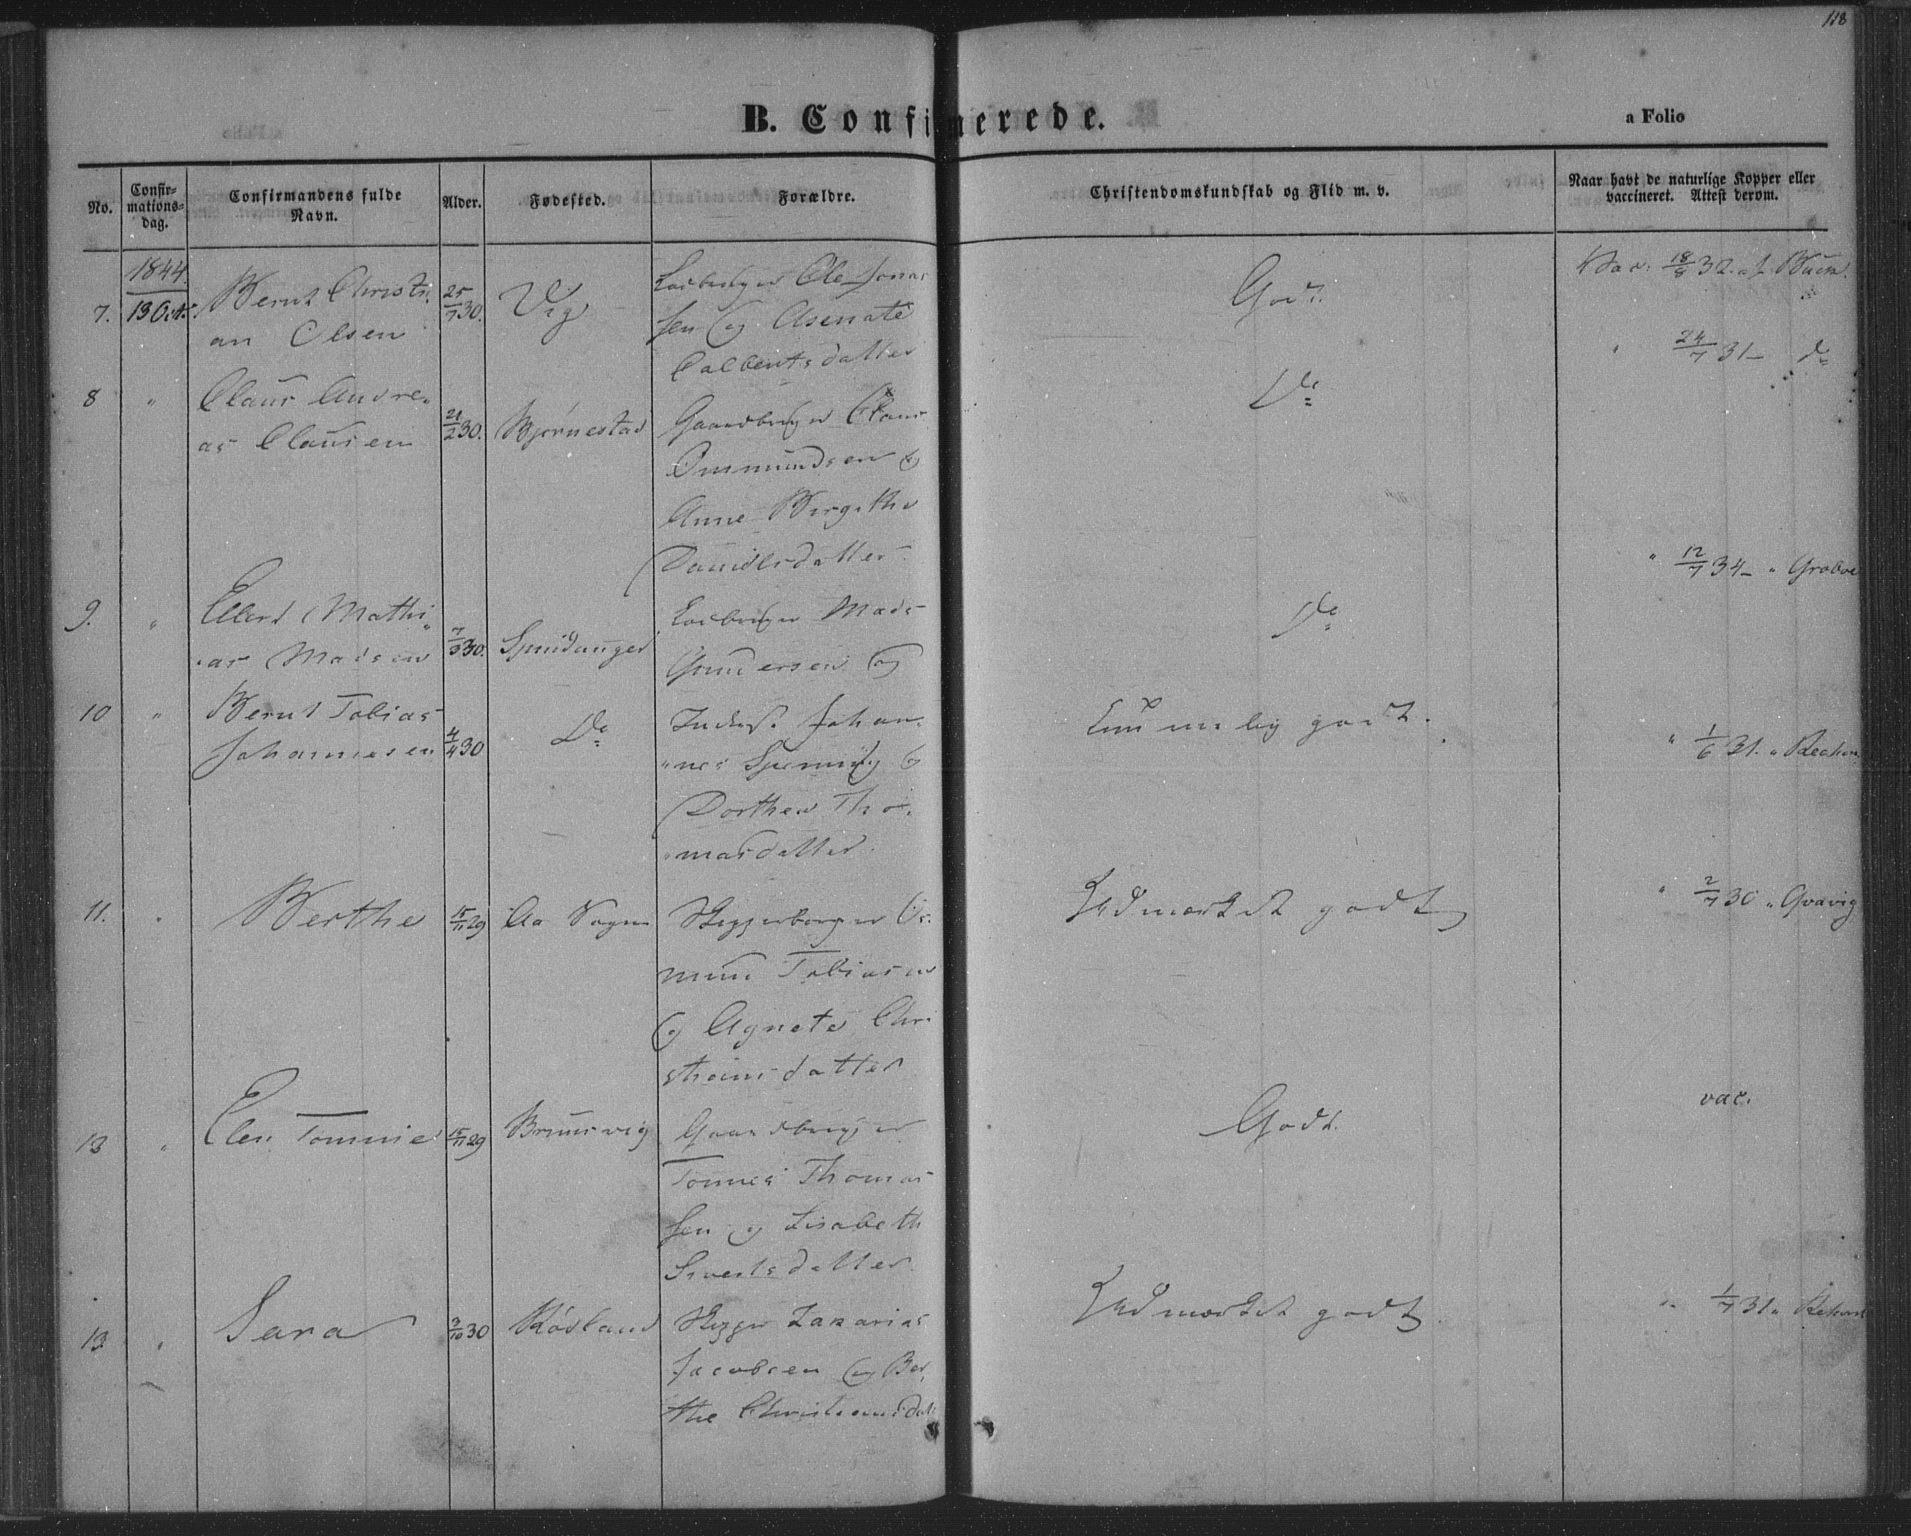 118
B. Confirmerede.
a Folio
No.
Confir-
mations-
dag.
Confirmandens fulde
Navn.
Alder.
Fødested.
Forældre.
Christendomskundskab og Flid m. v.
Naar havt de naturlige Kopper eller
vaccineret. Attest derom.
1844.
7. 13 Oct. Bernt Christi-
an Olsen
25/7 30.
Ole Jonas
sen og Asenate
Colbentsdatter
Godt.
Vac. 18/8 32. af
8 " Claus Andre-
as Clausen
21/2 30. Bjørnestad
Gaardbruger Claus
Ommundsen og
Anne Birgithe
Danielsdatter
Do
" 24/7 31 – do
9. " Mathi-
as Madsen
7/3 30.
Mads
Gundersen og
Do
" 12/7 34 – "
10 " Bernt Tobias
Johannesen
4/4 30
Do
Johan-
nes og
Dorthea Tho-
masdatter.
godt.
" 1/6 31. "
11. " Berthe
15/11 29 Aa Sogn
Tobiasen
og Agnete Chri-
stiansdatter
Udmærket godt
" 2/7 30 "
13 " Elen Tonnie
15/11 29
Gaardbruger
Tonnes Thomas
sen og Lisabeth
Sivertsdatter.
Godt.
vac.
13 " Sara
3/10 30
Zakarias
Jacobsen og Ber-
the Christians dat
Udmærket godt.
" 1/7 31 "